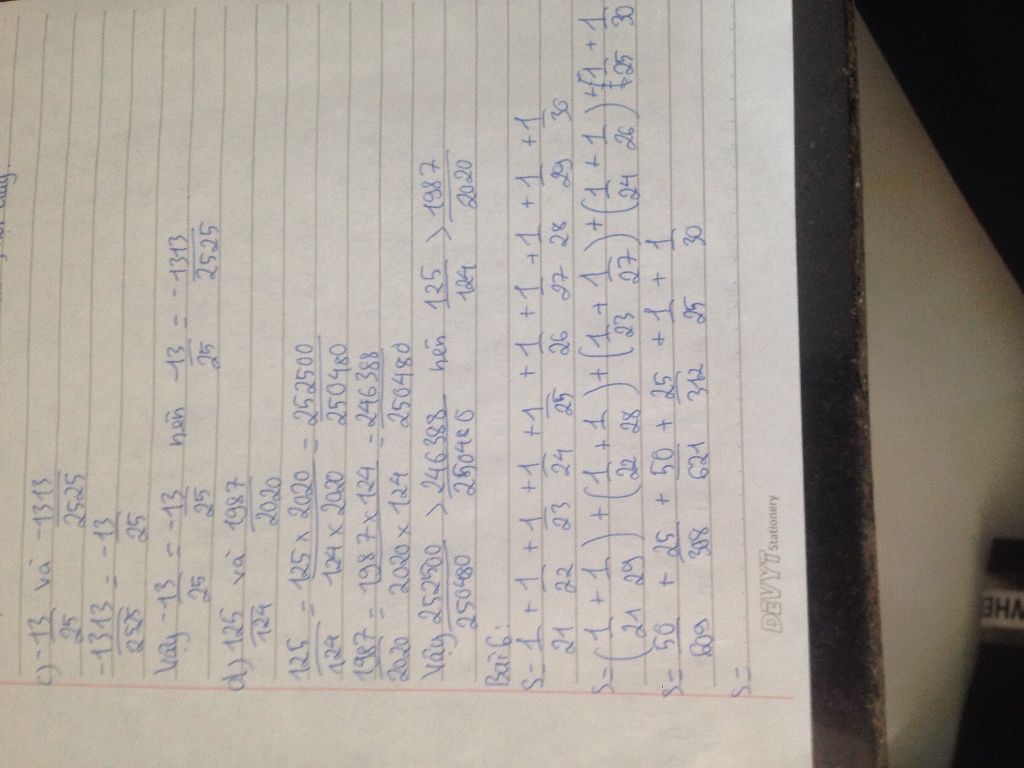 c) -13/25 và -1313/2525
-1313/2525 = -13/25
Vậy -13/25 = -13/25 nên -13/25 = -1313/2525
d) 125/124 và 1987/2020
125/124 = 125 x 2020/124 x 2020 = 252500/250480
1987/2020 = 1987 x 124/2020 x 124 = 246388/250480
Vậy 252500/250480 > 246388/250480 nên 125/124 > 1987/2020
Bài 6:
S = 1/21 + 1/22 + 1/23 + 1/24 + 1/25 + 1/26 + 1/27 + 1/28 + 1/29 + 1/30
S = (1/21 + 1/29) + (1/22 + 1/28) + (1/23 + 1/27) + (1/24 + 1/26) + (1/25 + 1/30
S = 50/609 + 25/308 + 50/621 + 25/312 + 1/25 + 1/30
S =
DEVYT Stationery